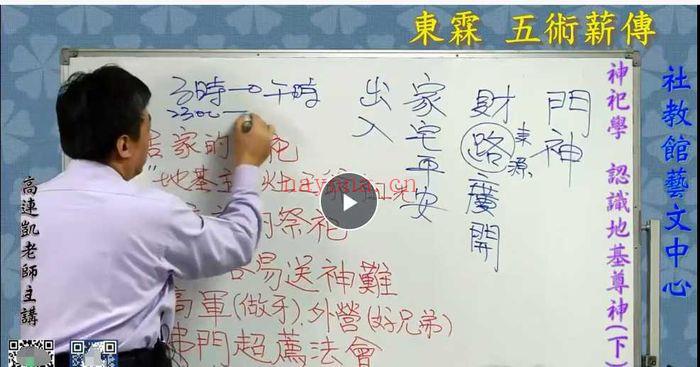 東霖 五術薪傳
社教館藝文中心
神祀學 認識地基尊神(下)
高連凱老師主講
門神
財路廣開
東源
家宅平安
出入
子時→午時
2300
居家的 祀
"地基主 灶
的祭祀
易送神難
高軍(做牙).外營(好兄弟)
佛門超薦法會